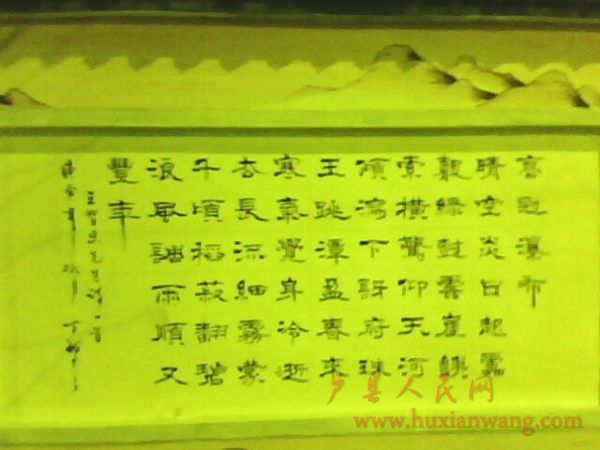 高冠瀑布
晴空炎日起雷
雲崖鎖
索橫驚仰天河
傾瀉下訝府珠
王跳潭盈春來
寒氣覺身冷逝
去長流細霧蒙
千頃稻菽翻碧
浪風調雨順又
豐年
先生詩一首
户县人民网
www.huxianwang.com